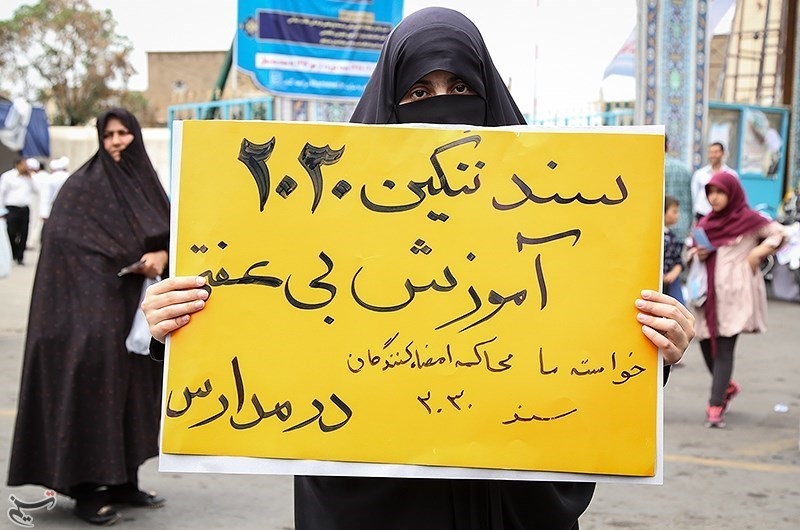 سند ننگین ۲۰۳۰
آموزش بی عفتی
در مدارس
خواسته ما محاکمه امضاءکنندگان
سند ۲۰۳۰
تسنیم